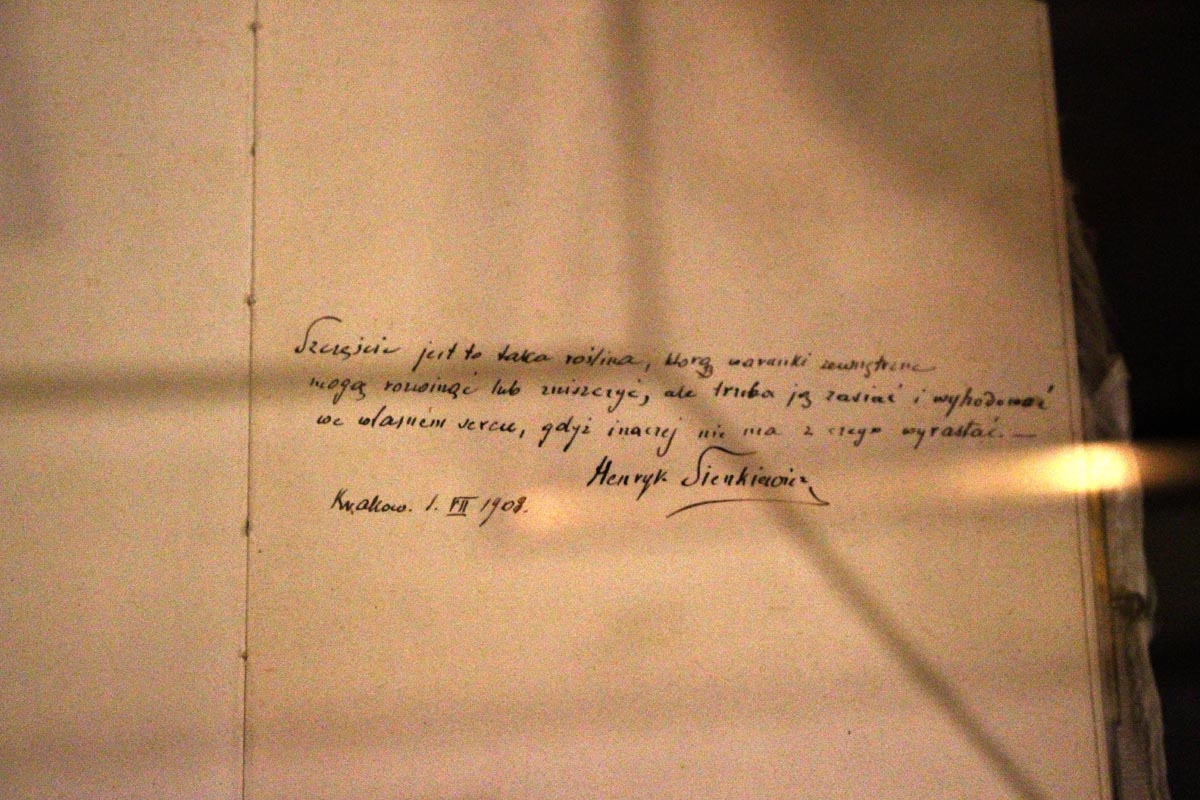 Szczęście jest to taka roślina, którą warunki zewnętrzne
mogą rozwinąć lub zniszczyć, ale trzeba ją zasiać i wyhodować
we własnem sercu, gdyż inaczej nie ma z czego wyrastać. —
Henryk Sienkiewicz
Kraków. 1. VII 1908.